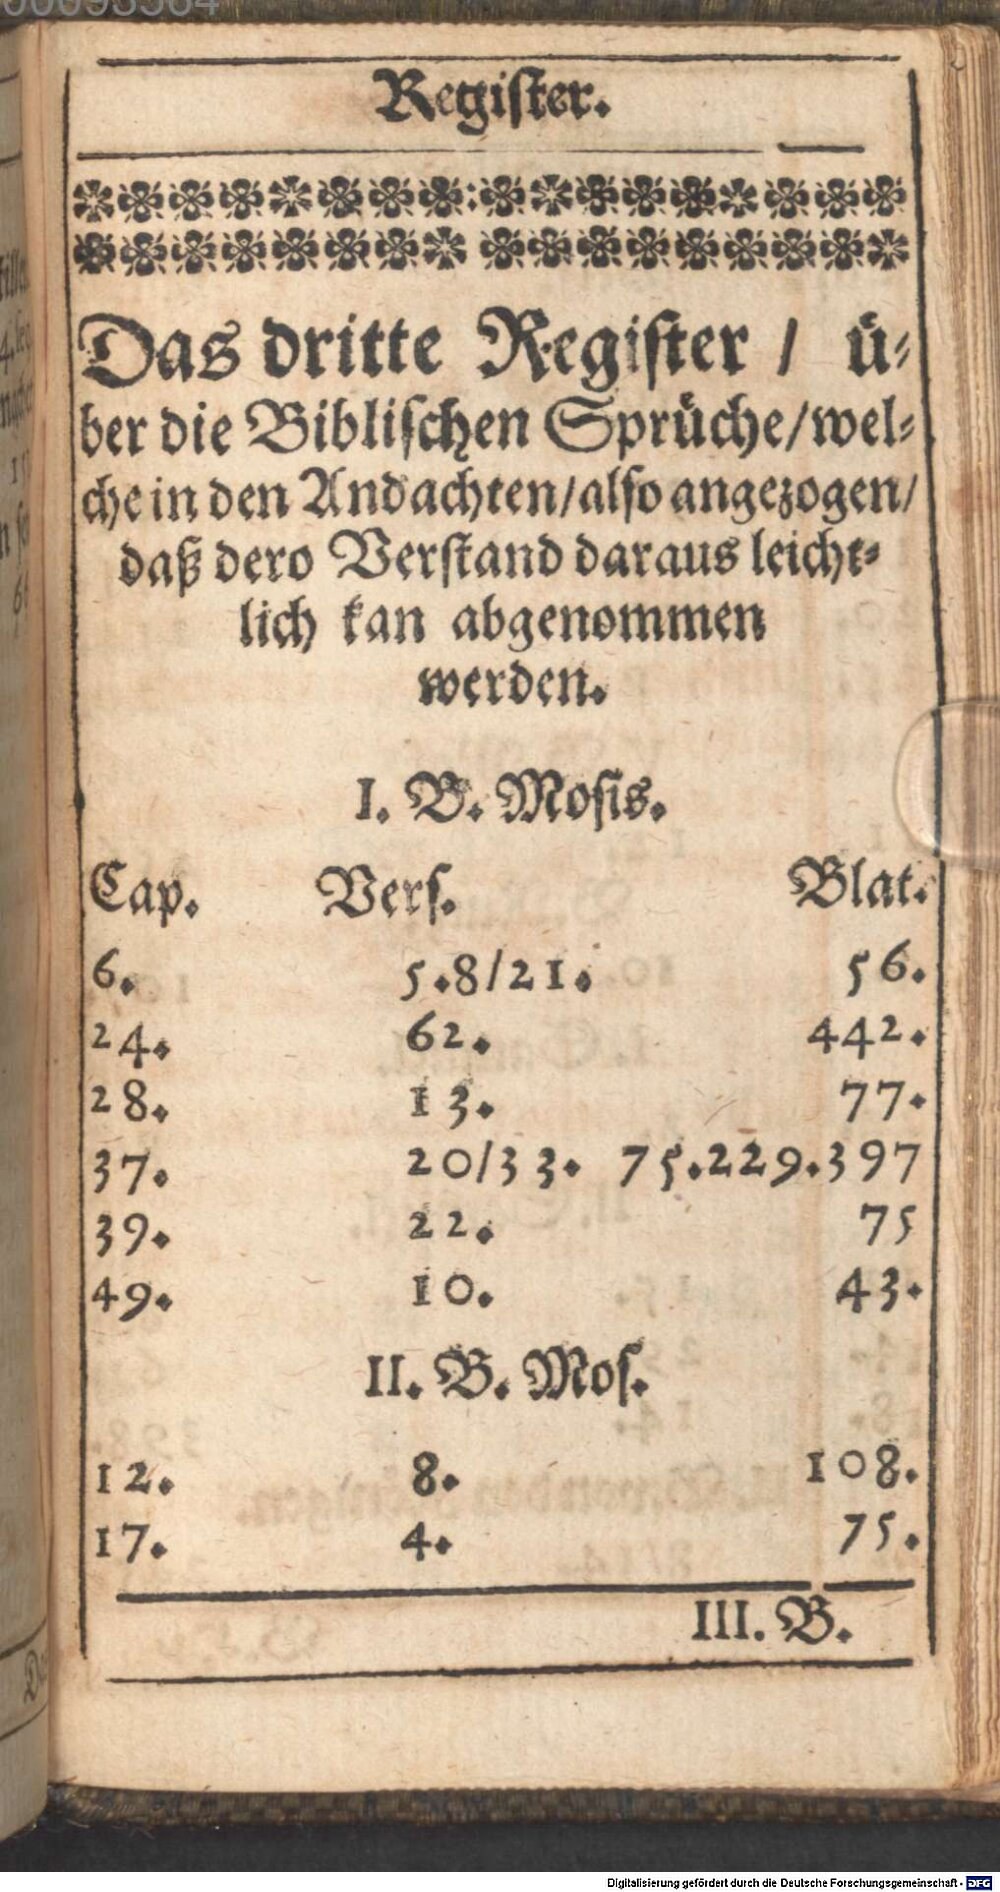 Regiſter.
Das dritte Regiſter / ü-
ber die Bibliſchen Sprüche/wel-
che in den Andachten/alſo angezogen/
daß dero Verſtand daraus leicht-
lich kan abgenommen
werden.
I. B. Moſis.
Cap. Verſ. Blat.
6. 5.8/21. 56.
24. 62. 442.
28. 13. 77.
37. 20/33. 75.229.397
39. 22. 75
49. 10. 43.
II. B. Moſ.
12. 8. 108.
17. 4. 75.
III. B.
Digitalisierung gefördert durch die Deutsche Forschungsgemeinschaft - DFG